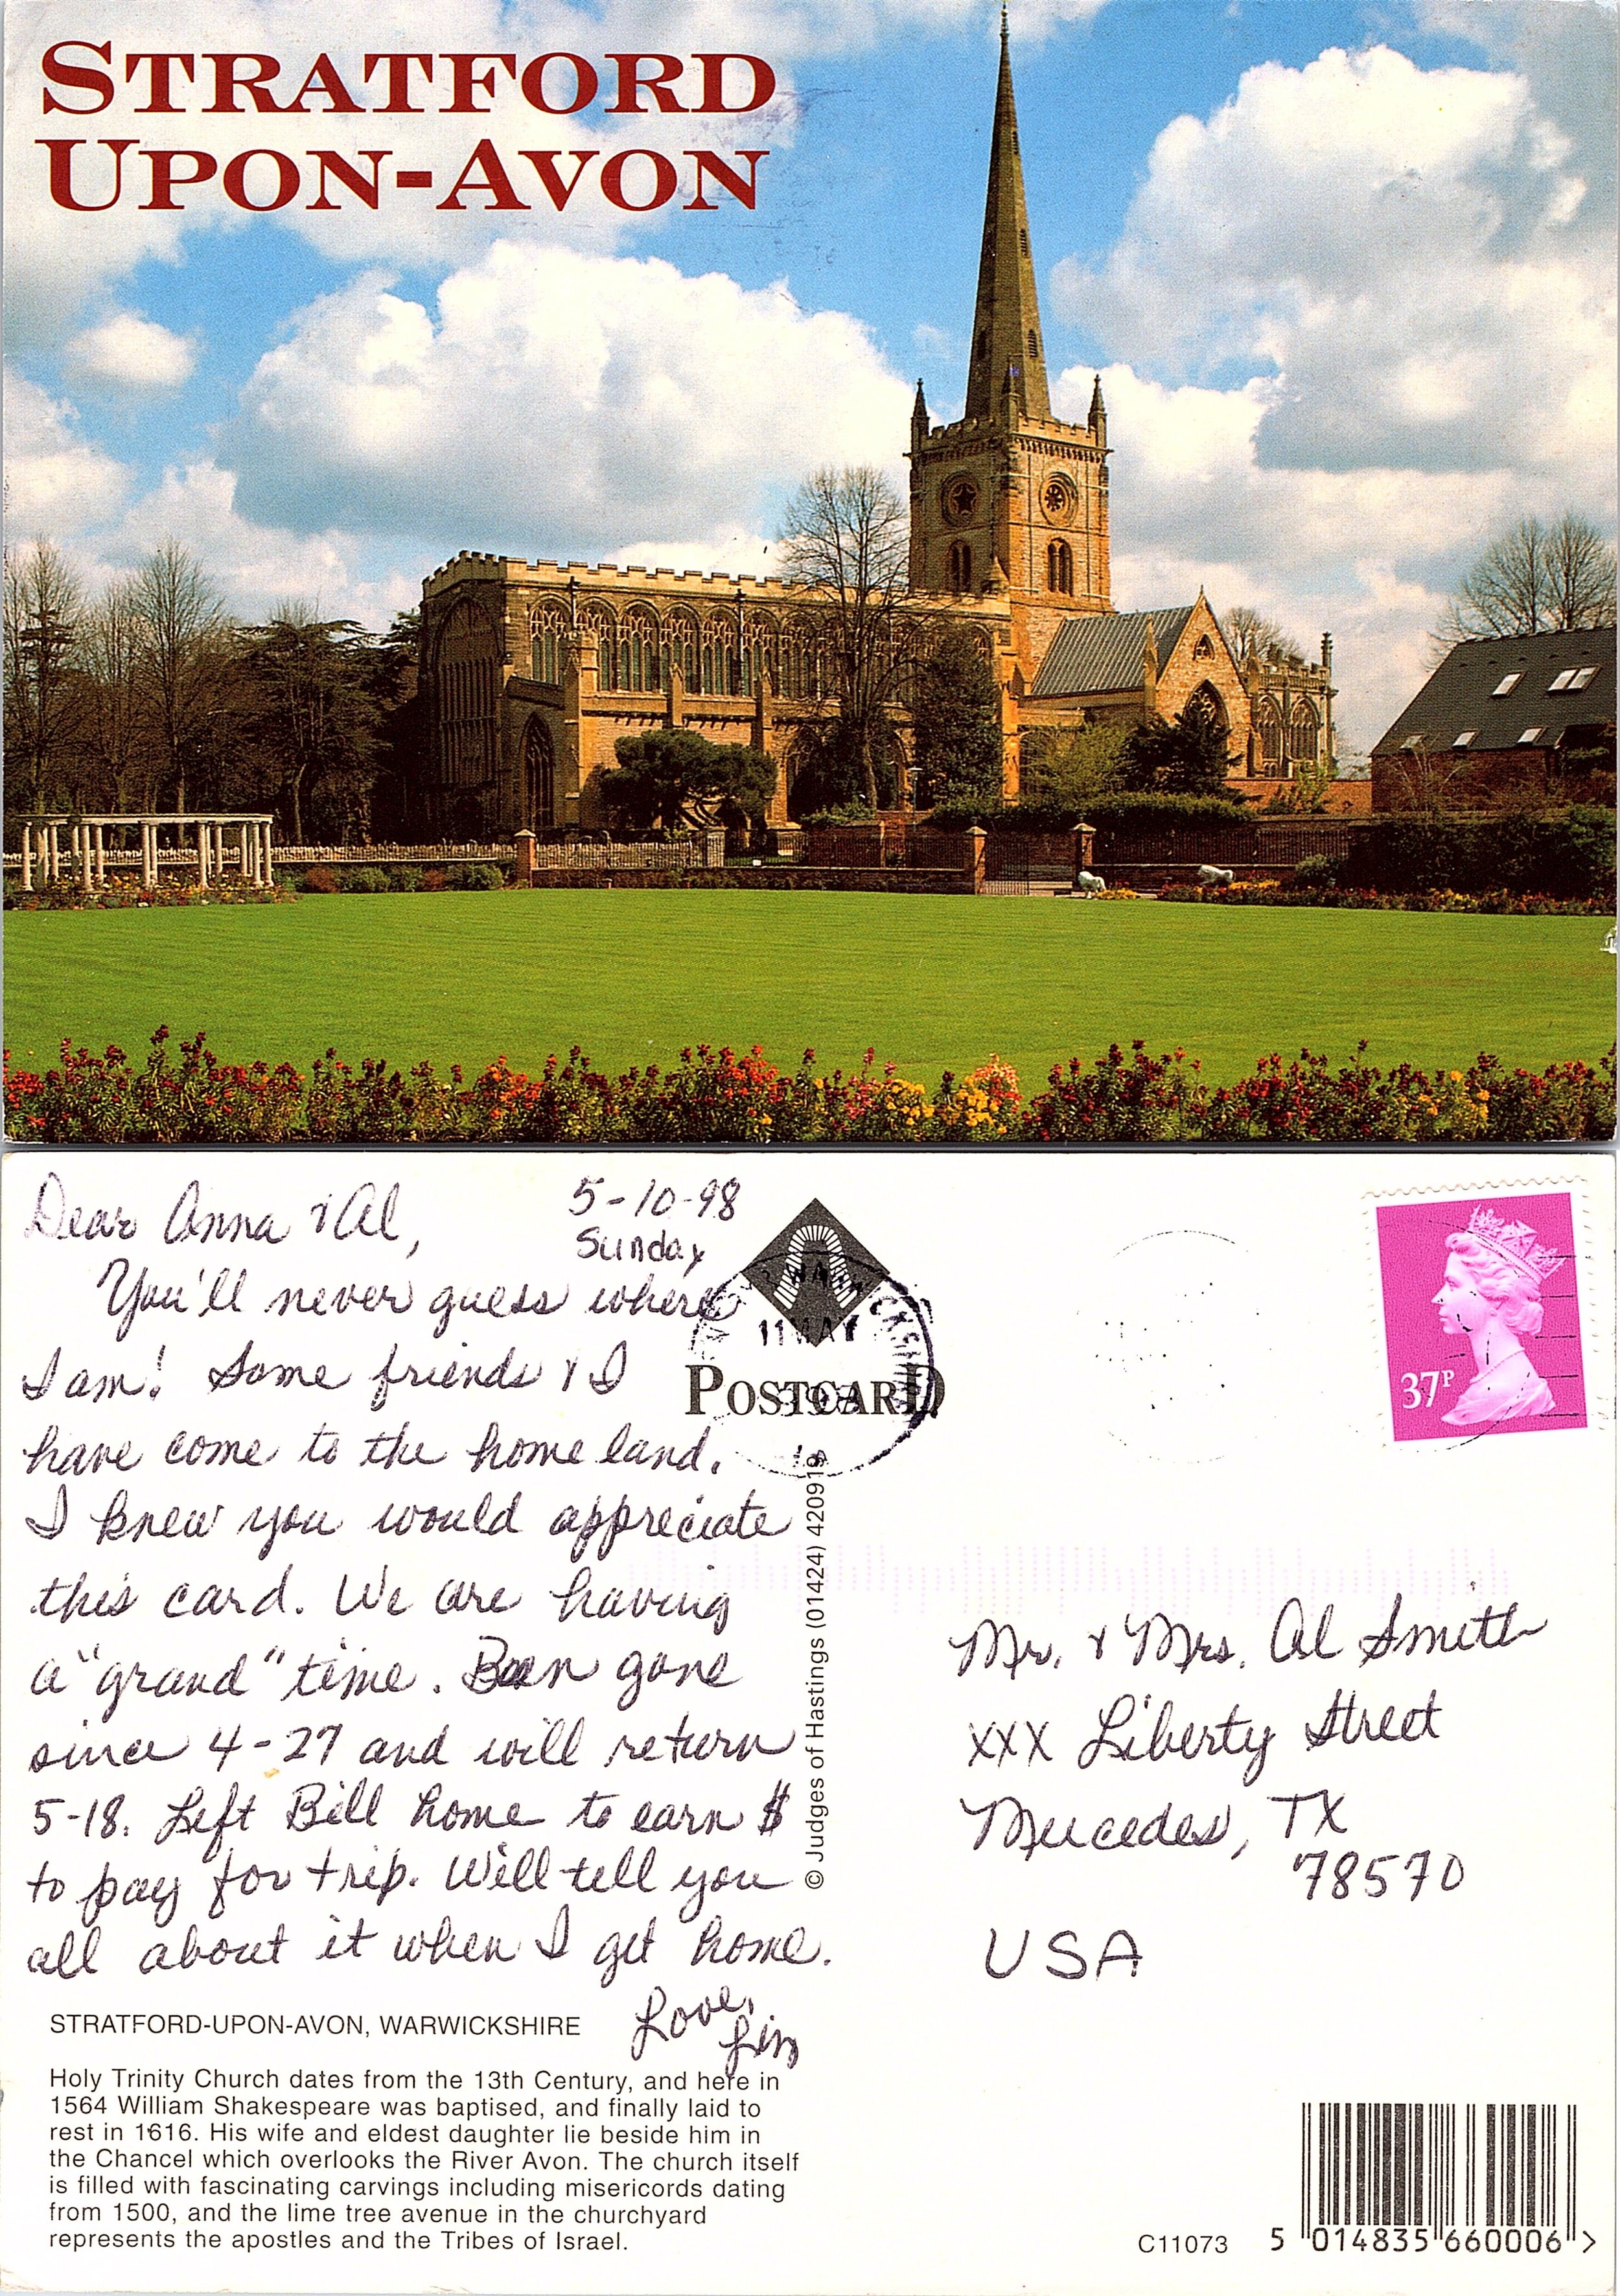 STRATFORD
UPON-AVON
Dear Anna & Al,
5-10-98
Sunday
You'll never guess where
I am! Some friends & I
have come to the home land.
I knew you would appreciate
this card. We are having
a "grand" time. Been gone
since 4-27 and will return
5-18. Left Bill home to earn $
to pay for trip. Will tell you
all about it when I get home.
Love,
STRATFORD-UPON-AVON, WARWICKSHIRE
Holy Trinity Church dates from the 13th Century, and here in
1564 William Shakespeare was baptised, and finally laid to
rest in 1616. His wife and eldest daughter lie beside him in
the Chancel which overlooks the River Avon. The church itself
is filled with fascinating carvings including misericords dating
from 1500, and the lime tree avenue in the churchyard
represents the apostles and the Tribes of Israel.
11 MAY
POSTCARD
© Judges of Hastings (01424) 420919
37P
Mr. & Mrs. Al Smith
XXX Liberty Street
Mercedes, TX
78570
USA
C11073
5 014835 660006 >